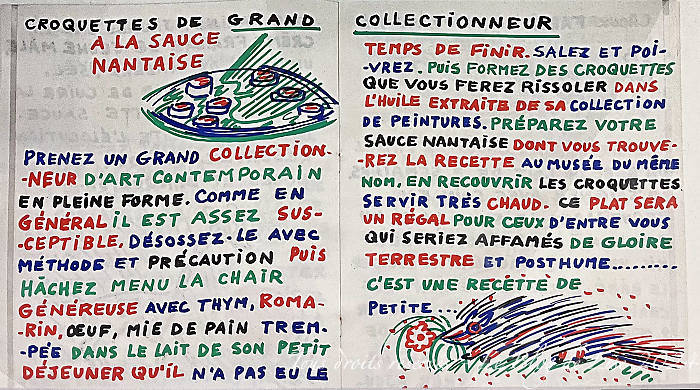 CROQUETTES DE GRAND
A LA SAUCE
NANTAISE
PRENEZ UN GRAND COLLECTION-
-NEUR D'ART CONTEMPORAIN
EN PLEINE FORME. COMME EN
GÉNÉRAL iL EST ASSEZ SUS-
-CEPTIBLE, DÉSOSSEZ-LE AVEC
MÉTHODE ET PRÉCAUTION PUIS
HÂCHEZ MENU LA CHAIR
GÉNÉREUSE AVEC THYM, ROMA-
-RIN, ŒUF, MIE DE PAIN TREM-
-PÉE DANS LE LAIT DE SON PETIT
DÉJEUNER QU'IL N'A PAS EU LE
COLLECTIONNEUR
TEMPS DE FINIR. SALEZ ET POI-
-VREZ. PUIS FORMEZ DES CROQUETTES
QUE VOUS FEREZ RISSOLER DANS
L'HUILE EXTRAITE DE SA COLLECTION
DE PEINTURES. PRÉPAREZ VOTRE
SAUCE NANTAISE DONT VOUS TROUVE-
-REZ LA RECETTE AU MUSÉE DU MÊME
NOM, EN RECOUVRIR LES CROQUETTES
SERVIR TRÈS CHAUD. CE PLAT SERA
UN RÉGAL POUR CEUX D'ENTRE VOUS
QUI SERIEZ AFFAMÉS DE GLOIRE
TERRESTRE ET POSTHUME..........
C'EST UNE RECETTE DE
PETITE....